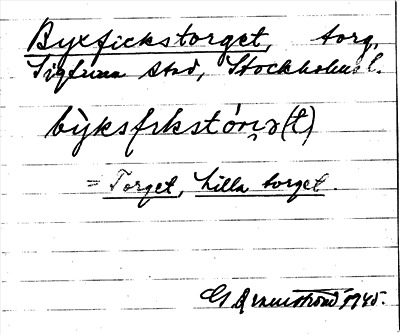 Byxfickstorget, torg,
Sigtuna stad, Stockholms l.
bỳksfıkstórjə(t)
= Torget, Lilla torget.
1945.